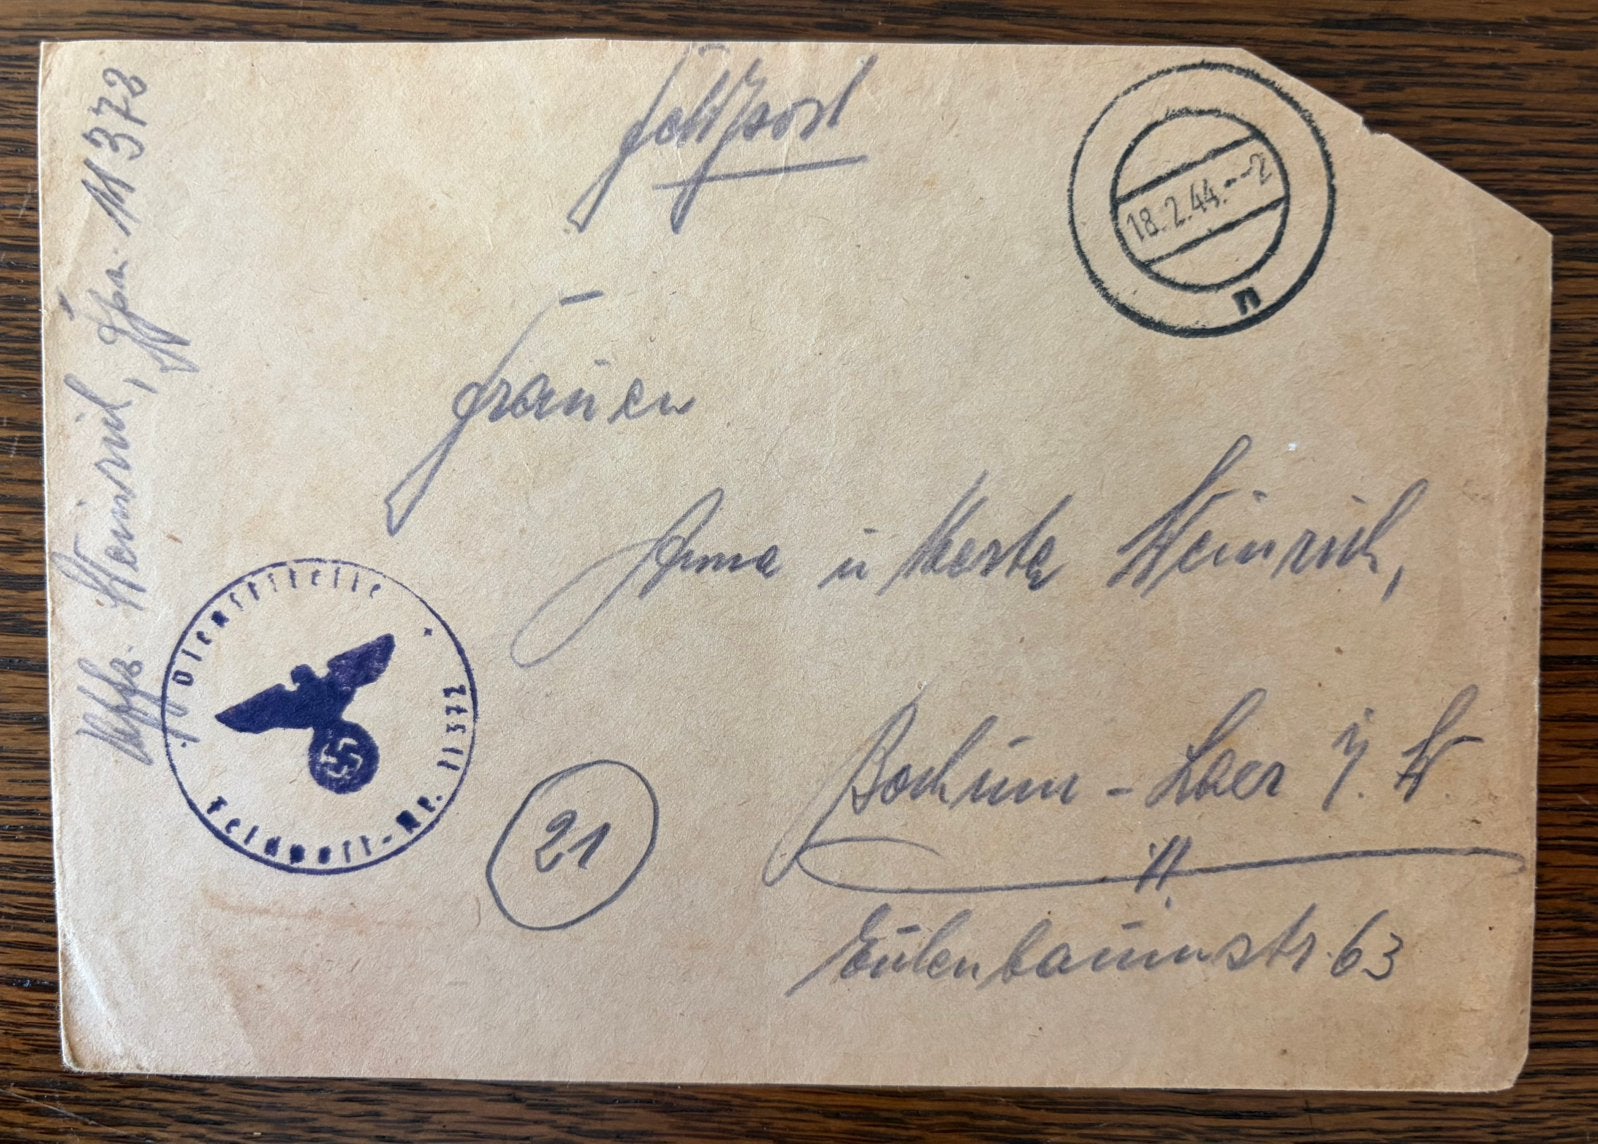 Feldpost
18.2.44.--2
n
Frauen
Anna u Herta Heinrich,
Bochum-Laer i. W.
"
Eulenbaumstr. 63
21
Uffz. Heinrich, Fpn. 11373
Dienststelle
Feldpost-Nr. 11372